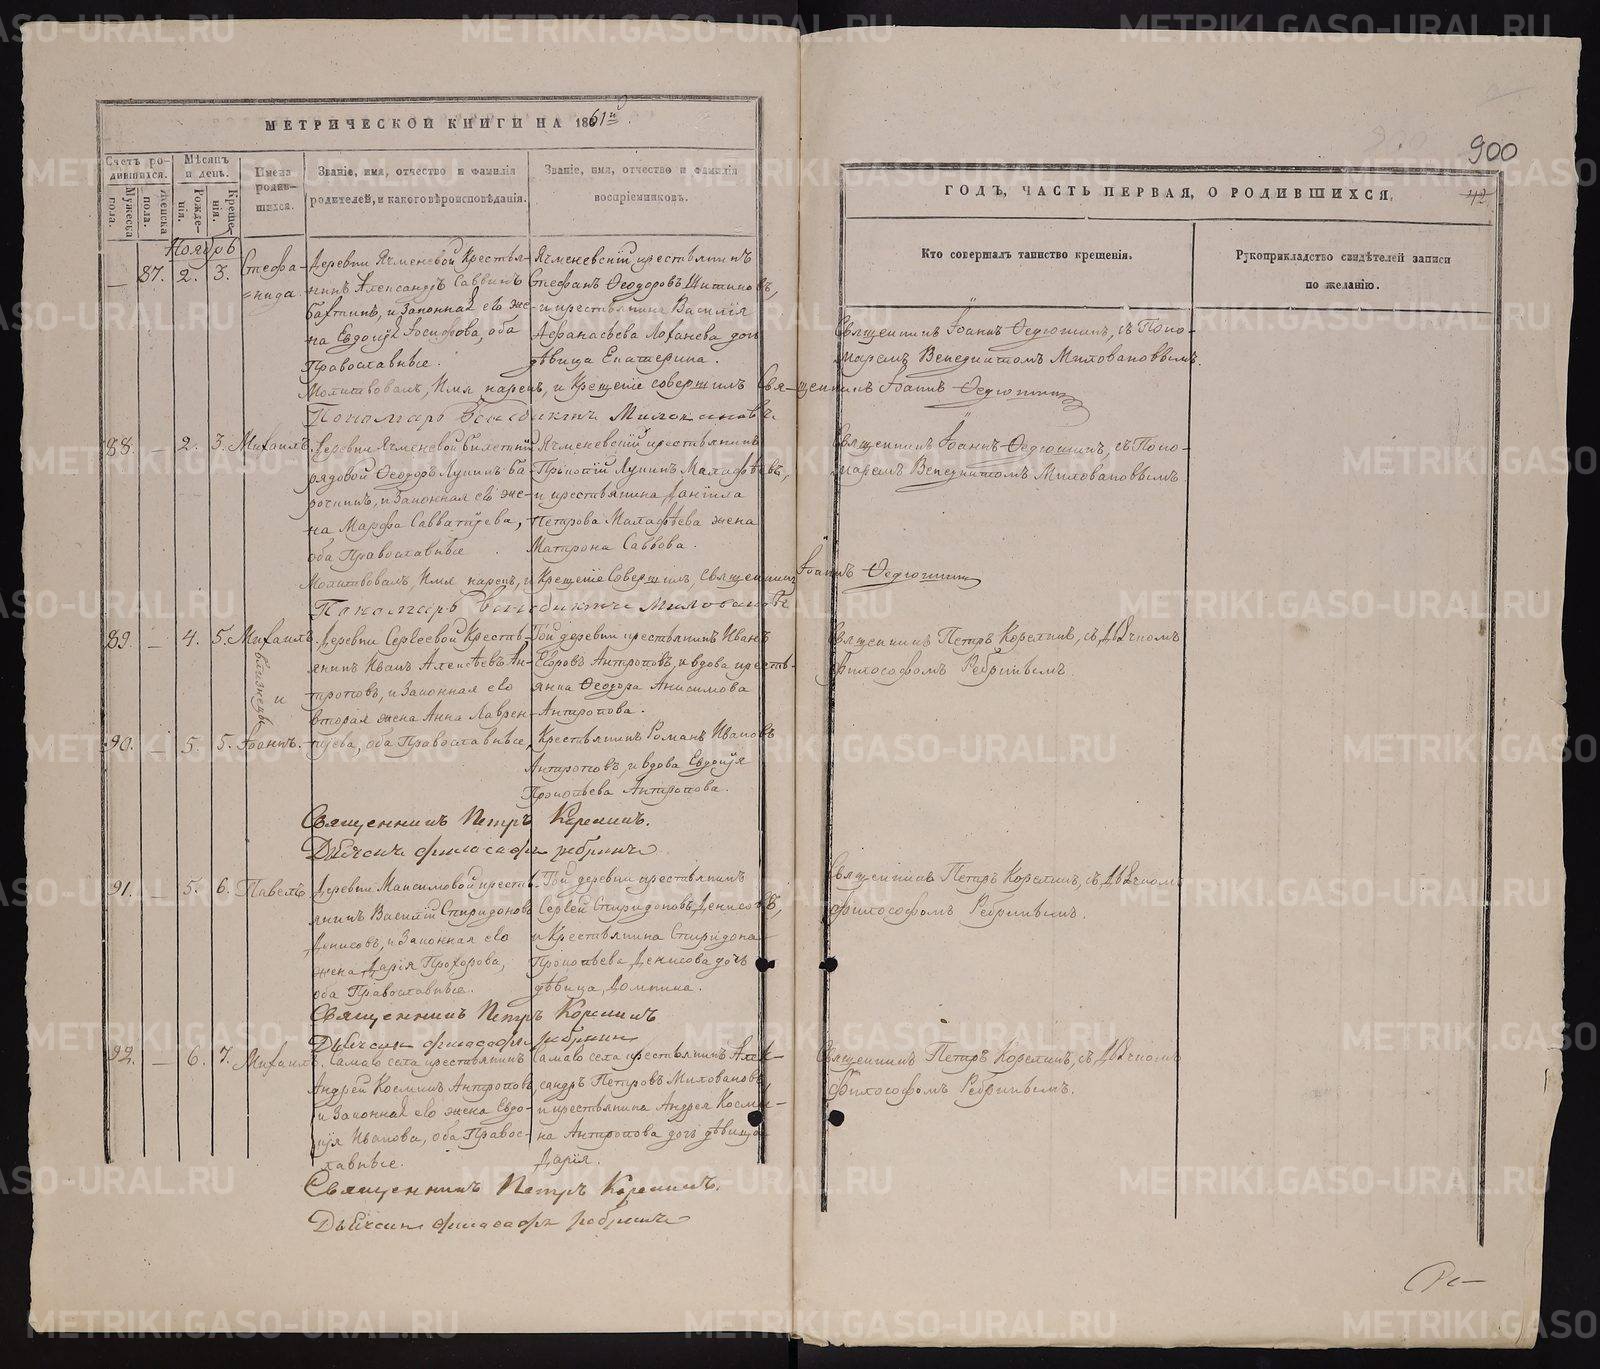 МЕТРИЧЕСКОЙ КНИГИ НА 1861й
Счетъ родившихся.
Мужеска пола.
Женска пола.
Мѣсяцъ и день.
Рожденія.
Крещенія.
Имена родившихся.
Званіе, имя, отчество и фамилія
родителей, и какого вѣроисповѣданія.
Званіе, имя, отчество и фамилія
воспріемниковъ.
Ноябрь
87. 2. 3. Стефанида
Деревни Ячменевой Крестья-
нинъ Александръ Саввинъ
и Законная его же-
на Евдокія Іосифова, оба
Православные.
Ячменевскій крестьянинъ
Стефанъ Ѳеодоровъ
и крестьянина Василія
Аѳанасьева дочь
дѣвица Екатерина.
Молитвовалъ, Имя нарекъ, и Крещеніе совершилъ Священникъ Іоаннъ Ѳедюшинъ
Пономарь Венедиктъ Миловановъ
88. 2. 3. Михаилъ
Деревни Ячменевой билетный
рядовой Ѳеодоръ Лукинъ
и Законная его же-
на Марѳа Савватіева,
оба Православные.
Ячменевскій крестьянинъ
Лукинъ Малафѣевъ,
и крестьянина Даніила
Петрова Малафѣева жена
Матрона Саввова.
Молитвовалъ, Имя нарекъ, и Крещеніе Совершилъ, Священникъ Іоаннъ Ѳедюшинъ
Пономарь Венедиктъ Миловановъ
89. 4. 5. Михаилъ
близнецы
и
90. 5. 5. Іоаннъ.
Деревни Сергѣевой Кресть-
янинъ Иванъ Алексѣевъ Ан-
троповъ, и Законная его
вторая жена Анна Лаврен-
тіева, оба Православные,
Той деревни крестьянинъ Иванъ
Антроповъ, и вдова кресть-
янка Ѳеодора Анисимова
Антропова.
Крестьянинъ Романъ Ивановъ
Антроповъ, и вдова Евдокія
Прокопьева Антропова.
Священникъ Петръ Корелинъ.
Дьячекъ философъ Ребринъ
91. 5. 6. Павелъ
Деревни Максимовой кресть-
янинъ Василій Спиридоновъ
Денисовъ, и Законная его
жена Дарія Прохорова,
оба Православные.
Той деревни крестьянинъ
Сергѣй Спиридоновъ Денисовъ,
и Крестьянина Спиридона
Прокопьева Денисова дочь
дѣвица Домника.
Священникъ Петръ Корелинъ
Дьячекъ философъ Ребринъ
92. 6. 7. Михаилъ.
Самаго села крестьянинъ
Андрей Косминъ Антроповъ,
и Законная его жена Евдо-
кія Иванова, оба Правос-
лавные.
Самаго села крестьянинъ Алек-
сандръ Петровъ Миловановъ,
и крестьянина Андрея Косми-
на Антропова дочь дѣвица
Дарія.
Священникъ Петръ Корелинъ.
Дьячекъ философъ Ребринъ
900
ГОДЪ, ЧАСТЬ ПЕРВАЯ, О РОДИВШИХСЯ.
42
Кто совершалъ таинство крещенія.
Рукоприкладство свидѣтелей записи
по желанію.
Священникъ Іоаннъ Ѳедюшинъ, съ Поно-
маремъ Венедиктомъ Миловановымъ.
Священникъ Іоаннъ Ѳедюшинъ, съ Поно-
маремъ Венедиктомъ Миловановымъ
Священникъ Петръ Корелинъ, съ Дьячкомъ
Философомъ Ребринымъ.
Священникъ Петръ Корелинъ, съ Дьячкомъ
Философомъ Ребринымъ.
Священникъ Петръ Корелинъ, съ Дьячкомъ
Философомъ Ребринымъ.
METRIKI.GASO-URAL.RU